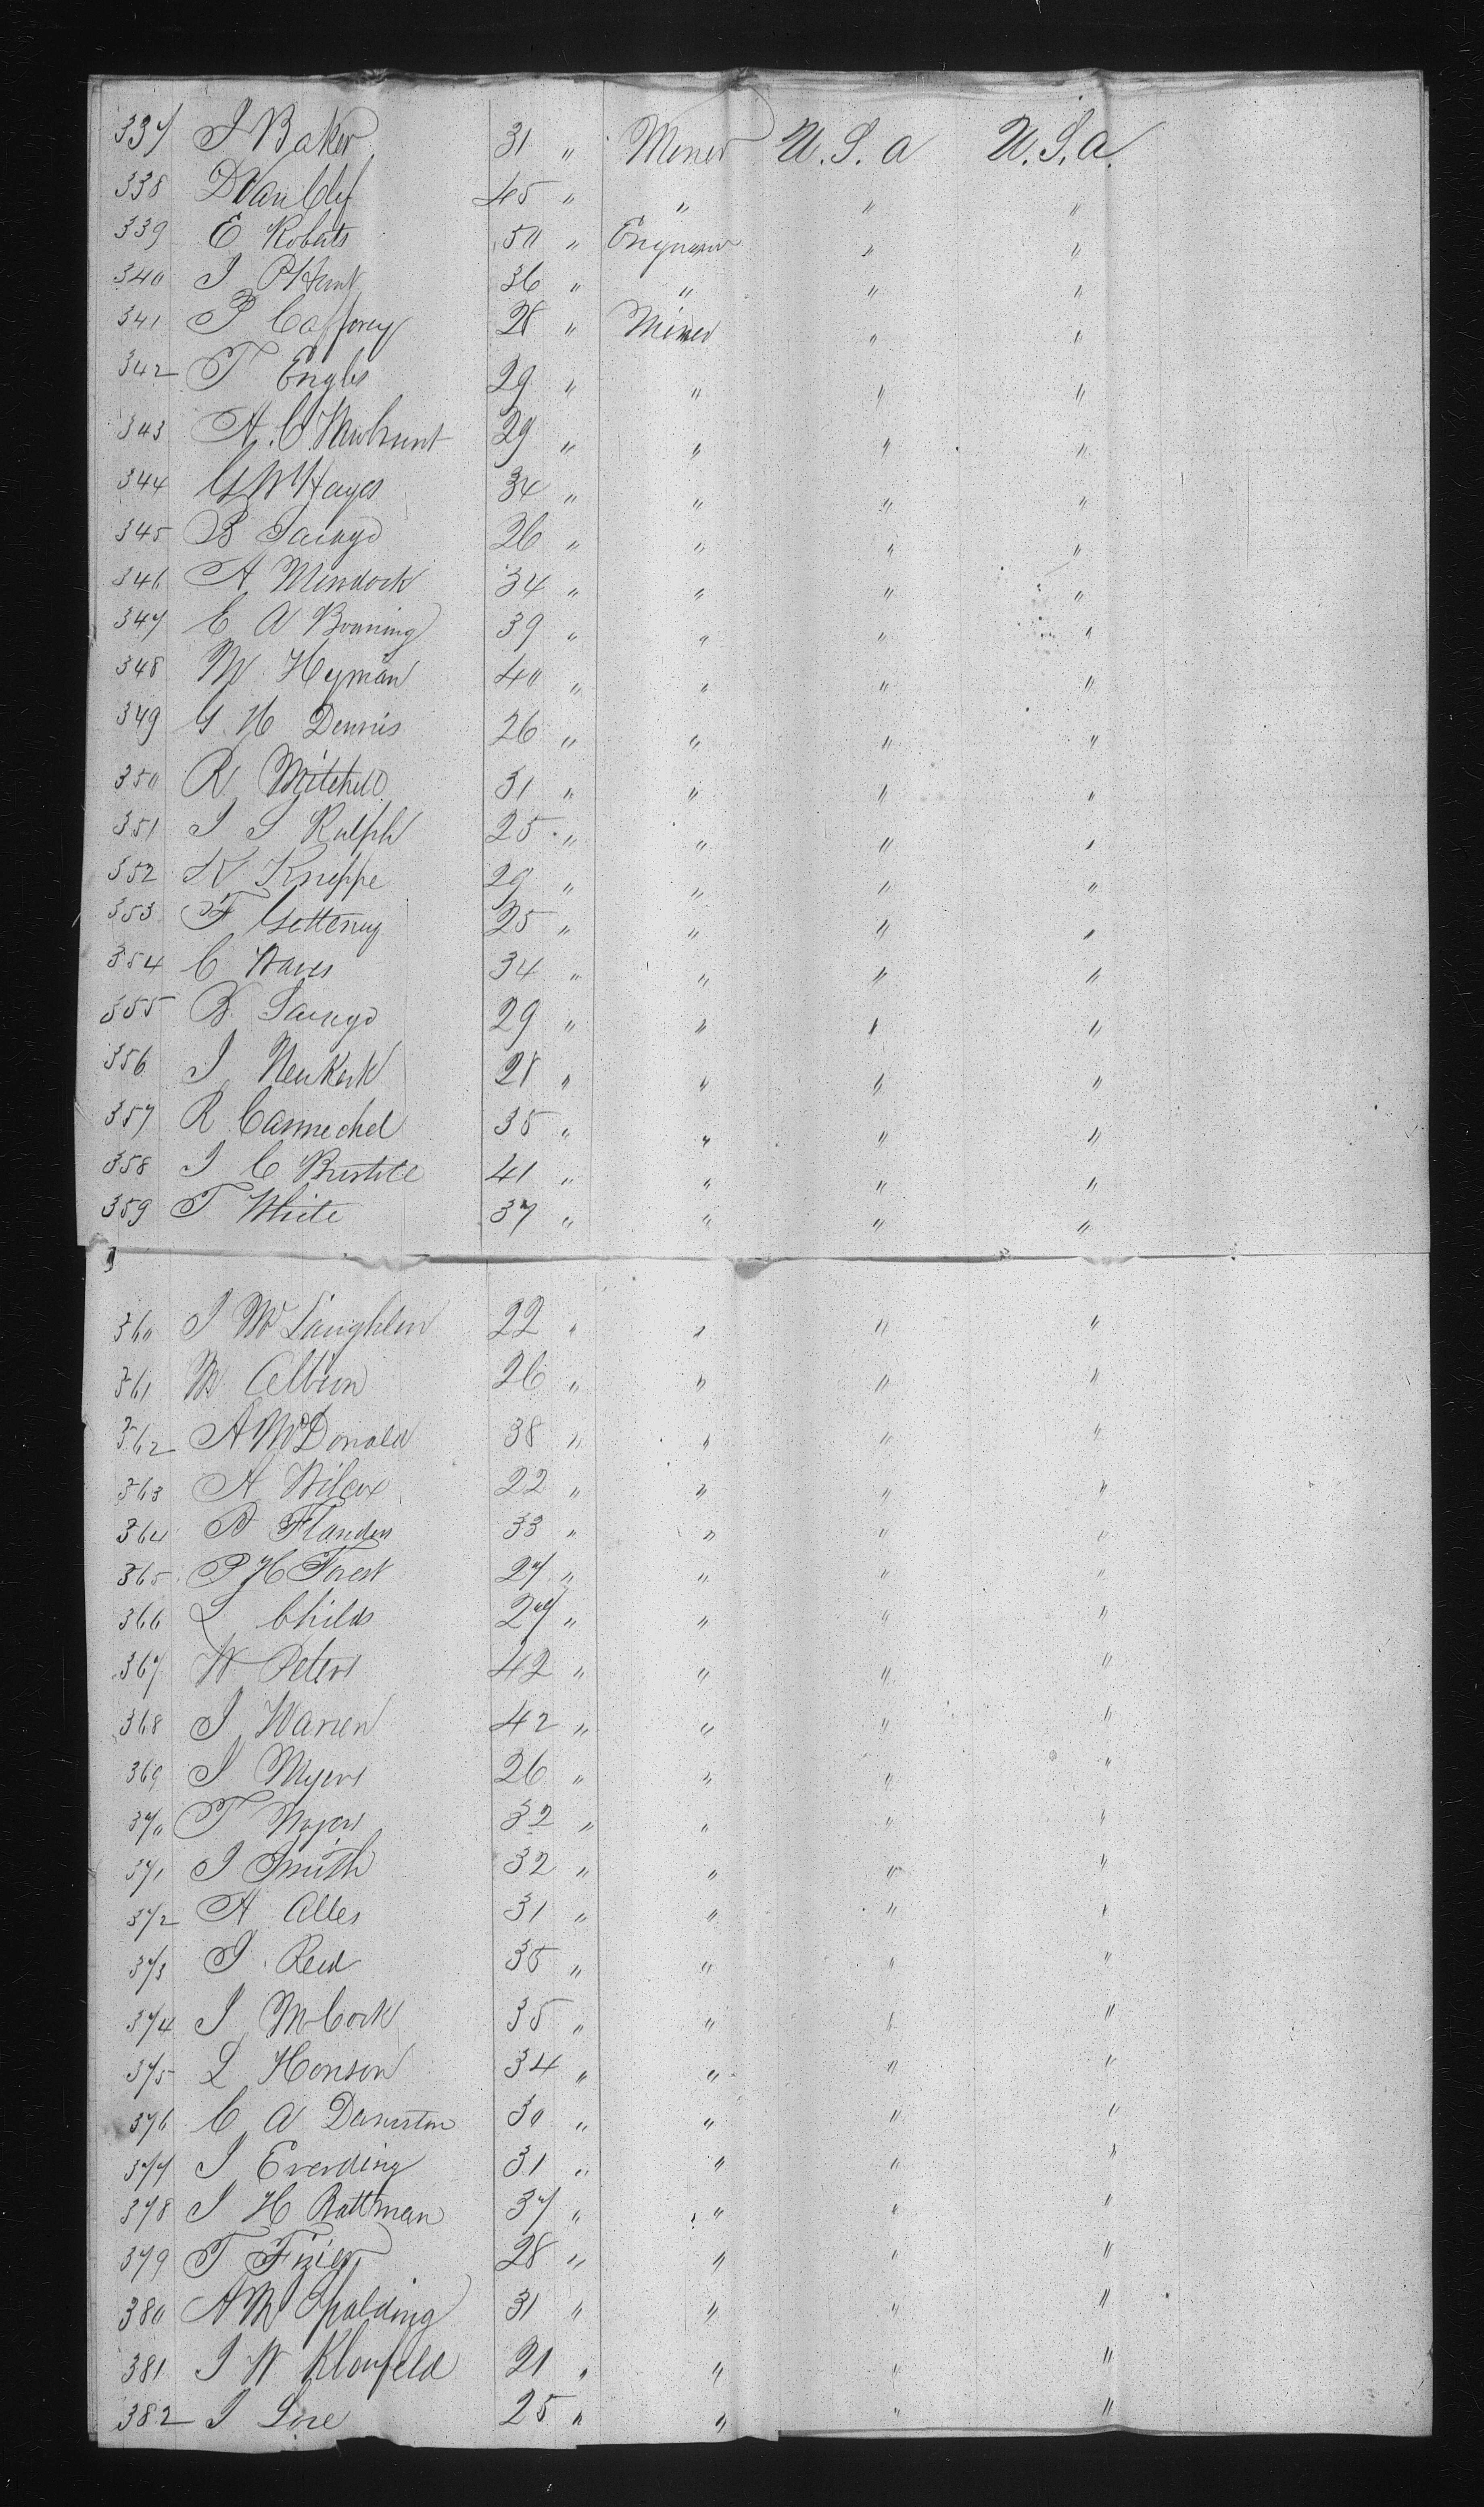 337 J Baker 31 " Miner U.S.a U.S.a.
338 D Van Clef 45 " " " "
339 E Roberts 50 " Engineer " "
340 J P Hunt 36 " " " "
341 P Caffrey 28 " Miner " "
342 T Engles 29 " " " "
343 A. C. 29 " " " "
344 G W Hayes 34 " " " "
345 B 26 " " " "
346 A Mendock 34 " " " "
347 E A 39 " " " "
348 M Hyman 40 " " " "
349 G H Dennis 26 " " " "
350 R Mitchell 31 " " " "
351 J S Ralph 25 " " " "
352 N Knippe 29 " " " "
353 F 25 " " " "
354 C 34 " " " "
355 B. 29 " " " "
356 J Neukirk 28 " " " "
357 R Carmechel 35 " " " "
358 J C 41 " " " "
359 T White 37 " " " "
360 J McLaughlin 22 " " " "
361 Albion 26 " " " "
362 A McDonald 38 " " " "
363 A Wilcox 22 " " " "
364 Flanders 33 " " " "
365 P H Forest 27 " " " "
366 L Childs 27 " " " "
367 W Peters 42 " " " "
368 J Warren 42 " " " "
369 J Myers 26 " " " "
370 T 32 " " " "
371 J Smith 32 " " " "
372 A Alles 31 " " " "
373 J. Reid 35 " " " "
374 J McCork 35 " " " "
375 L Honson 34 " " " "
376 C A 30 " " " "
377 J Everding 31 " " " "
378 J H Rottman 37 " " " "
379 T 28 " " " "
380 A M Spalding 31 " " " "
381 J W Klonfeld 21 " " " "
382 J Lore 25 " " " "